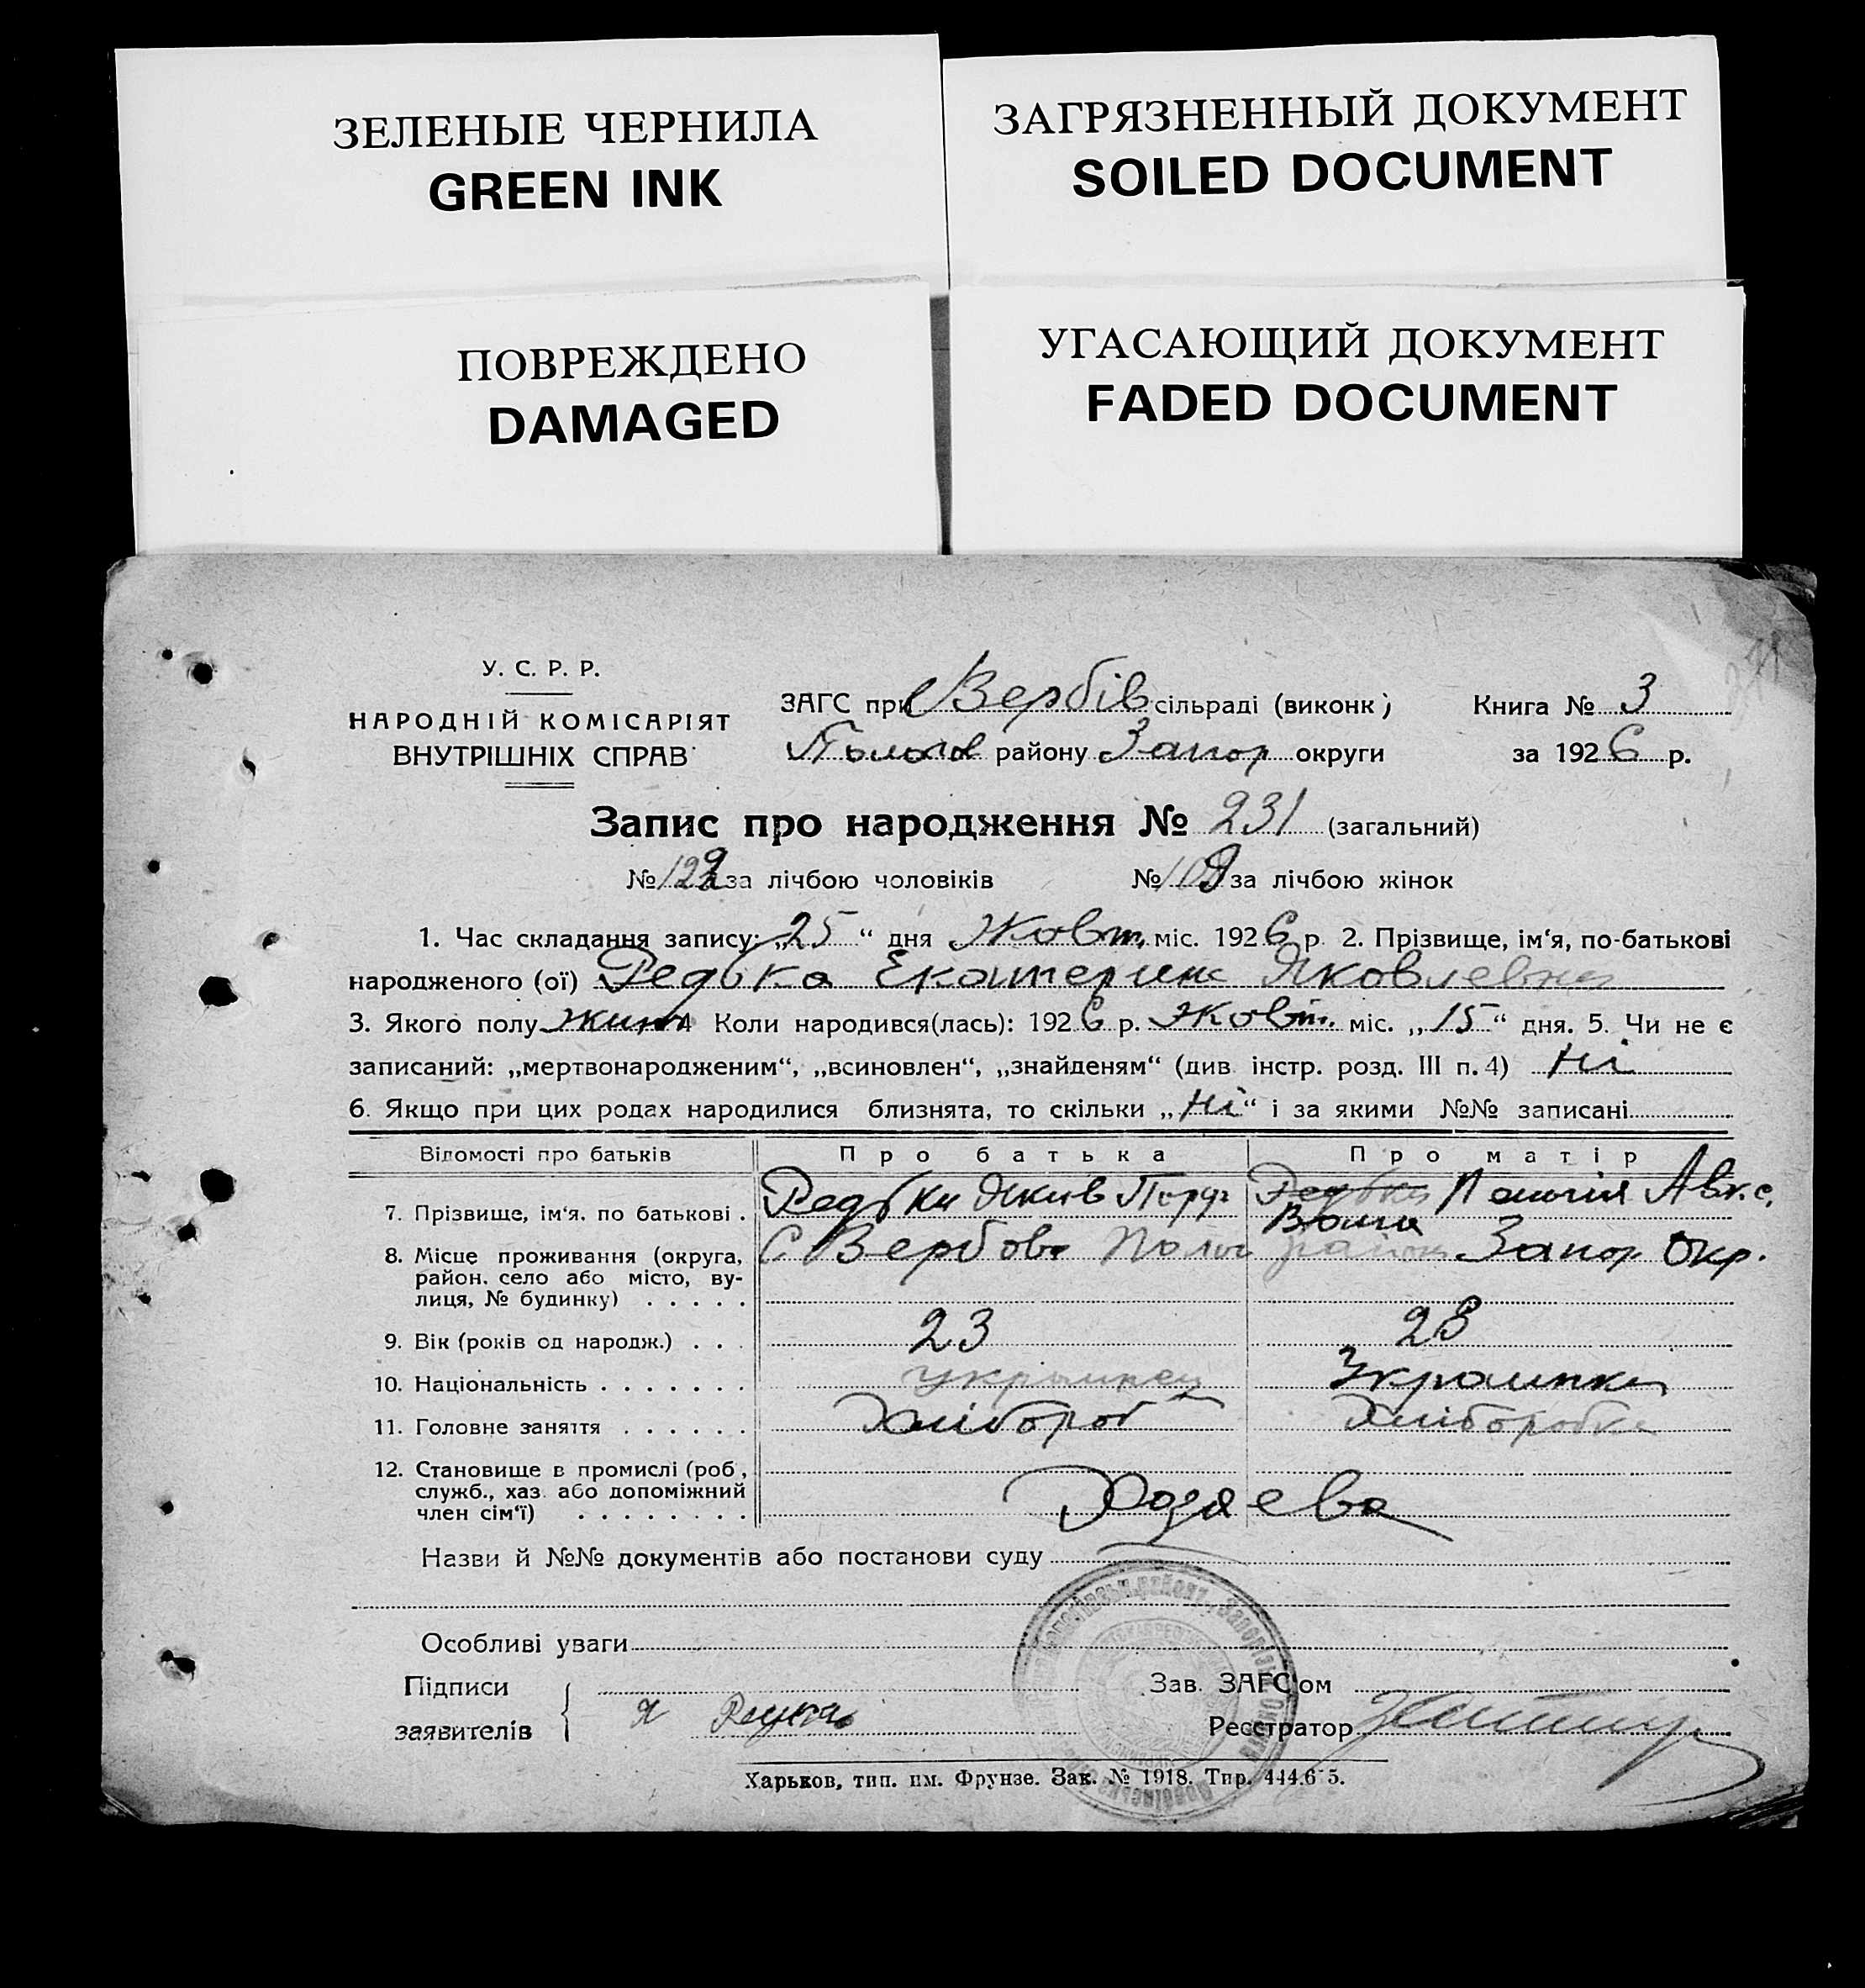 ЗЕЛЕНЫЕ ЧЕРНИЛА
GREEN INK
ЗАГРЯЗНЕННЫЙ ДОКУМЕНТ
SOILED DOCUMENT
ПОВРЕЖДЕНО
DAMAGED
УГАСАЮЩИЙ ДОКУМЕНТ
FADED DOCUMENT
У. С. Р. Р.
НАРОДНІЙ КОМІСАРІЯТ
ВНУТРІШНІХ СПРАВ
ЗАГС при Вербів сільраді (виконк)
Пологов району Запор округи
Книга № 3
за 1926 р.
Запис про народження № 231 (загальний)
№ 122 за лічбою чоловіків № 109 за лічбою жінок
1. Час складання запису: „25“ дня Жовт. міс. 1926 р 2. Прізвище, ім‘я, по-батькові
народженого (ої) Редька Екатерина Яковлевна
3. Якого полу жин 4 Коли народився(лась): 1926 р. Жовт. міс. „15“ дня. 5. Чи не є
записаний: „мертвонародженим“, „всиновлен“, „знайденям“ (див інстр. розд. III п. 4) Ні
6. Якщо при цих родах народилися близнята, то скільки „Ні“ і за якими №№ записані
Відомості про батьків Про батька Про матір
7. Прізвище, ім‘я, по батькові . Редька Яків Редька
8. Місце проживання (округа, С Вербове Полог район Запор Окр.
район, село або місто, ву-
лиця, № будинку) . . . . .
9. Вік (років од народж.) . . . 23 23
10. Національність . . . . . . . українец Українка
11. Головне заняття . . . . . . Хлібороб Хліборобка
12. Становище в промислі (роб,
служб., хаз. або допоміжний
член сім‘ї) . . . . . . . . Хозяева
Назви й №№ документів або постанови суду
Особливі уваги
Підписи
заявителів
Зав. ЗАГС'ом
Реєстратор
Харьков, тип. им. Фрунзе. Зак. № 1918. Тир.